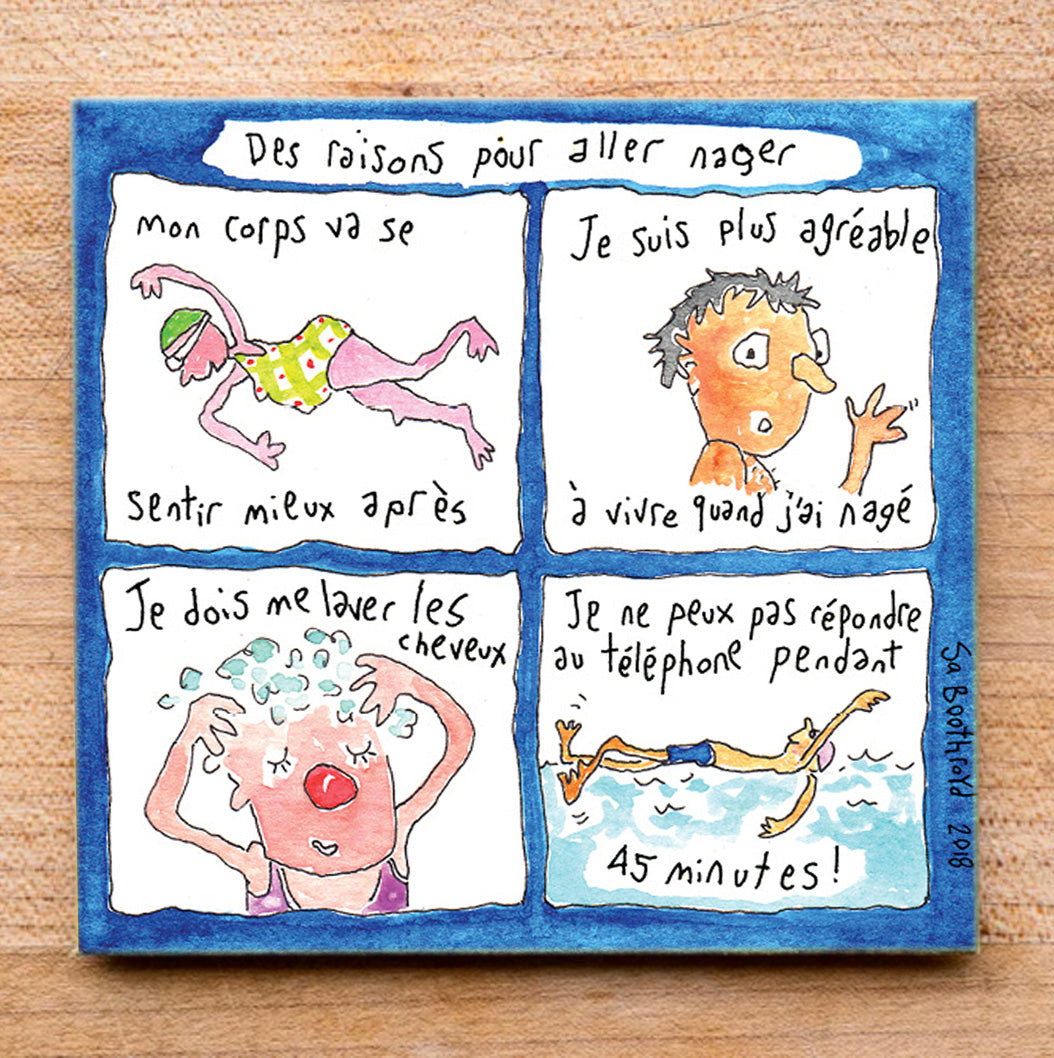 Des raisons pour aller nager
mon corps va se
sentir mieux après
Je suis plus agréable
à vivre quand j'ai nagé
Je dois me laver les
cheveux
Je ne peux pas répondre
au téléphone pendant
45 minutes !
Sa Boothroyd 2018